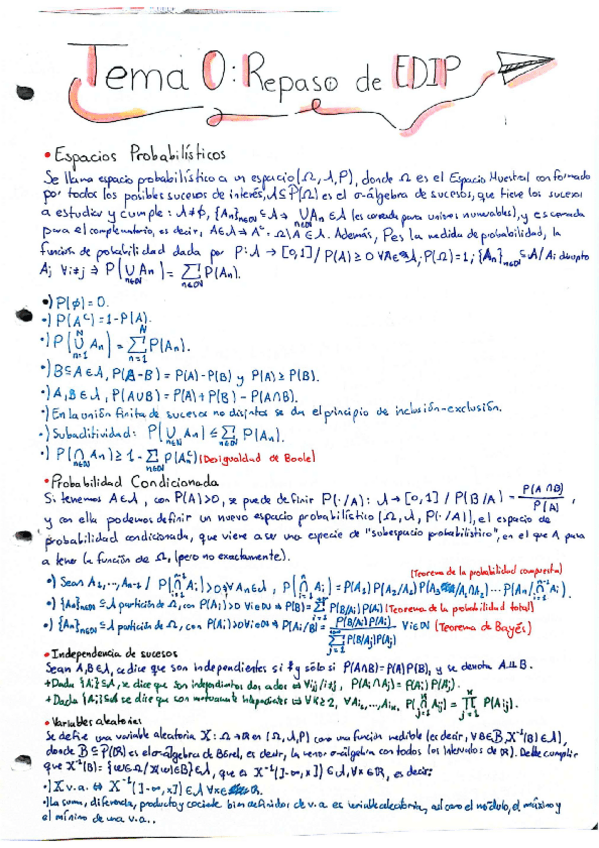 Tema 0: Repaso de EDIP
• Espacios Probabilísticos
Se llama espacio probabilístico a un espacio (Ω, A, P), donde Ω es el Espacio Muestral conformado
por todos los posibles sucesos de interés, A⊆P(Ω) es el σ-álgebra de sucesos, que tiene los sucesos
a estudiar y cumple: A≠∅, {An}n∈ℕ ⊆ A → ⋃n∈ℕ An ∈ A (es cerrada para uniones numerables), y es cerrada
para el complementario, es decir, A∈A → Aᶜ = Ω\A ∈ A. Además, P es la medida de probabilidad, la
función de probabilidad dada por P: A → [0,1] / P(A) ≥ 0 ∀A∈A; P(Ω)=1; {An}n∈ℕ ⊆ A / Ai disjunto
Aj ∀i≠j ⇒ P(⋃n∈ℕ An) = ∑n∈ℕ P(An).
•) P(∅) = 0.
•) P(Aᶜ) = 1-P(A).
•) P(⋃n=1^N An) = ∑n=1^N P(An).
•) B⊆A∈A, P(A-B) = P(A)-P(B) y P(A) ≥ P(B).
•) A,B∈A, P(A∪B) = P(A)+P(B) - P(A∩B).
•) En la unión finita de sucesos no disjuntos se da el principio de inclusión-exclusión.
•) Subaditividad: P(⋃n∈ℕ An) ≤ ∑n∈ℕ P(An).
•) P(⋂n∈ℕ An) ≥ 1 - ∑n∈ℕ P(Anᶜ) (Desigualdad de Boole)
• Probabilidad Condicionada
Si tenemos A∈A, con P(A)>0, se puede definir P(·/A): A → [0,1] / P(B/A) = P(A∩B)/P(A),
y con ella podemos definir un nuevo espacio probabilístico (Ω, A, P(·/A)), el espacio de
probabilidad condicionada, que viene a ser una especie de "subespacio probabilístico", en el que A pasa
a tener la función de Ω, (pero no exactamente).
(Teorema de la probabilidad compuesta)
•) Sean A1,..., An-1 / P(⋂i=1^n-1 Ai)>0 ∀An∈A, P(⋂i=1^n Ai) = P(A1) P(A2/A1) P(A3/A1∩A2) ··· P(An/⋂i=1^n-1 Ai).
•) {An}n∈ℕ ⊆ A partición de Ω, con P(Ai)>0 ∀i∈ℕ ⇒ P(B) = ∑ P(B/Ai) P(Ai) (Teorema de la probabilidad total)
•) {An}n∈ℕ ⊆ A partición de Ω, con P(Ai)>0 ∀i∈ℕ ⇒ P(Ai/B) = P(B/Ai)P(Ai)/∑P(B/Aj)P(Aj) ∀i∈ℕ (Teorema de Bayes)
• Independencia de sucesos
Sean A,B∈A, se dice que son independientes si y sólo si P(A∩B)=P(A)P(B), y se denota A⊥⊥B.
+ Dada {Ai}⊆A, se dice que son independientes dos a dos ⇔ ∀i,j / i≠j, P(Ai∩Aj) = P(Ai) P(Aj).
+ Dada {Ai}⊆A se dice que son mutuamente independientes ⇔ ∀K≥2, ∀Ai1,..., Aik, P(⋂j=1^k Aij) = ∏j=1^k P(Aij).
• Variables aleatorias
Se define una variable aleatoria X: Ω→ℝ en (Ω, A, P) como una función medible (es decir, ∀B∈B, X⁻¹(B)∈A),
donde B⊆P(ℝ) es el σ-álgebra de Borel, es decir, la menor σ-álgebra con todos los intervalos de ℝ). Debe cumplir
que X⁻¹(B) = {ω∈Ω / X(ω)∈B}∈A, que es X⁻¹(]-∞, x]) ∈ A, ∀x∈ℝ, es decir:
•) X v.a. ⇔ X⁻¹(]-∞, x]) ∈ A ∀x∈ℝ.
•) La suma, diferencia, producto y cociente bien definidos de v.a es variable aleatoria, así como el módulo, el máximo y
el mínimo de una v.a..